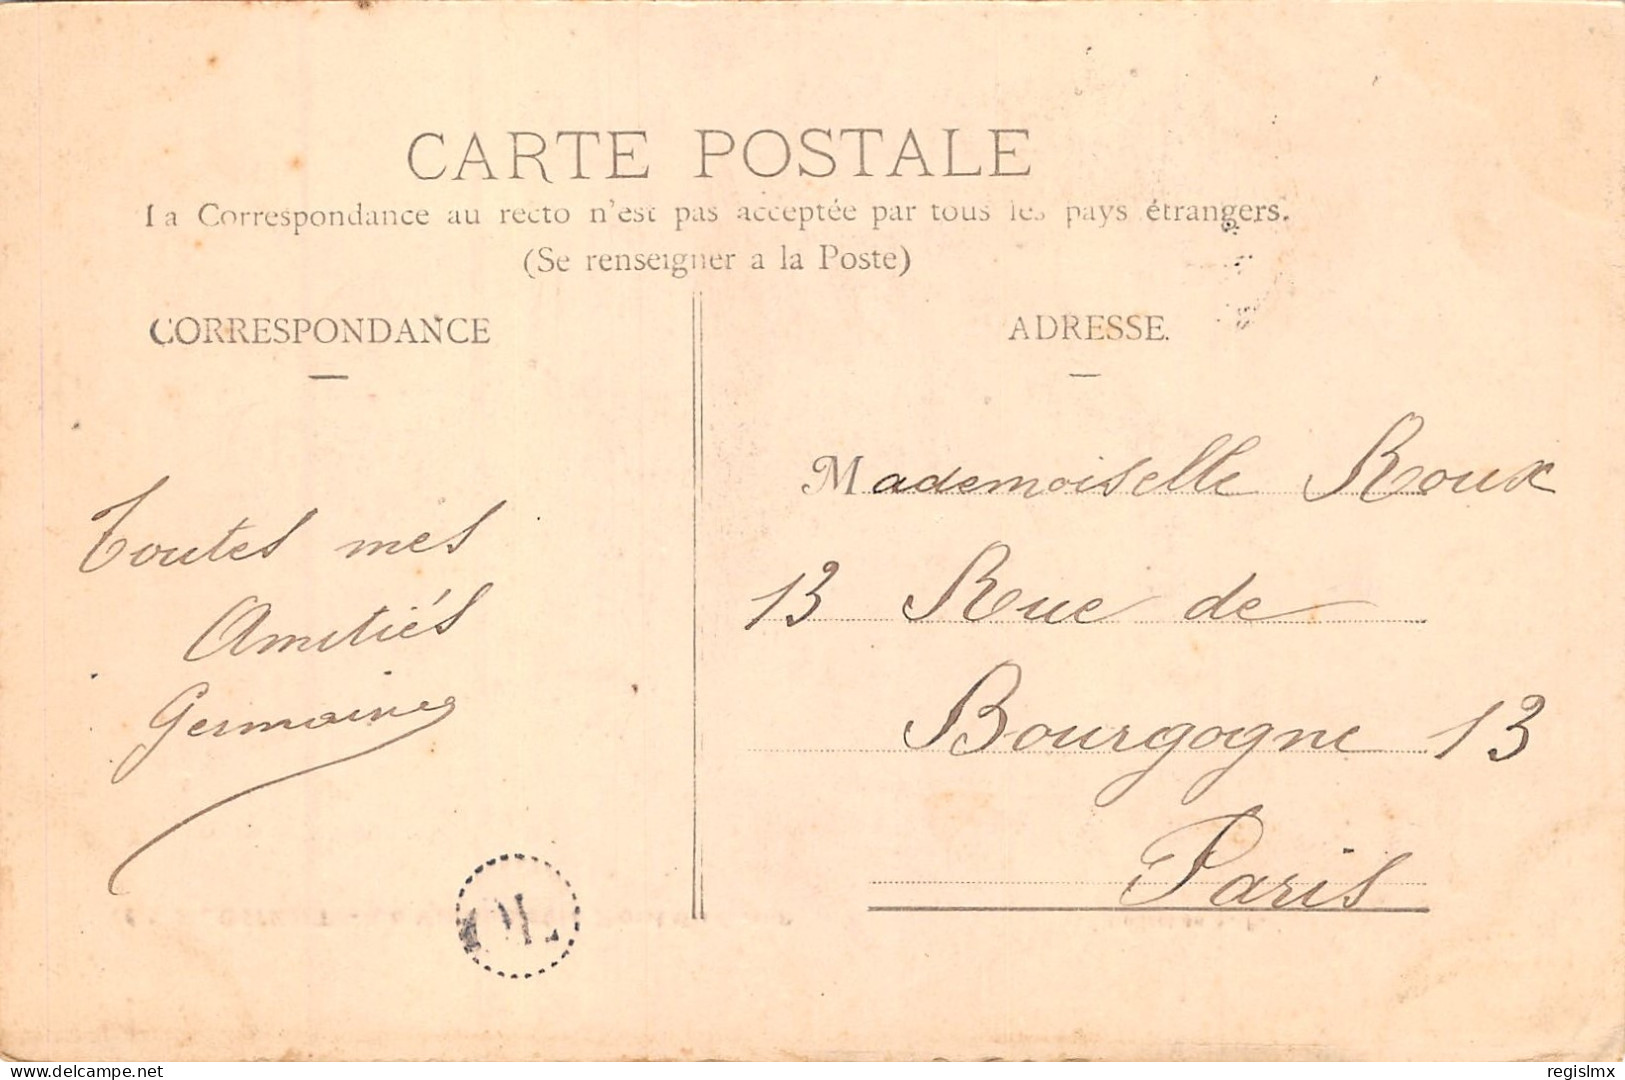 CARTE POSTALE
La Correspondance au recto n'est pas acceptée par tous les pays étrangers.
(Se renseigner a la Poste)
CORRESPONDANCE
ADRESSE.
Toutes mes
Amitiés
Germaine
Mademoiselle Roux
13 Rue de
Bourgogne 13
Paris
delcampe.net
regislmx